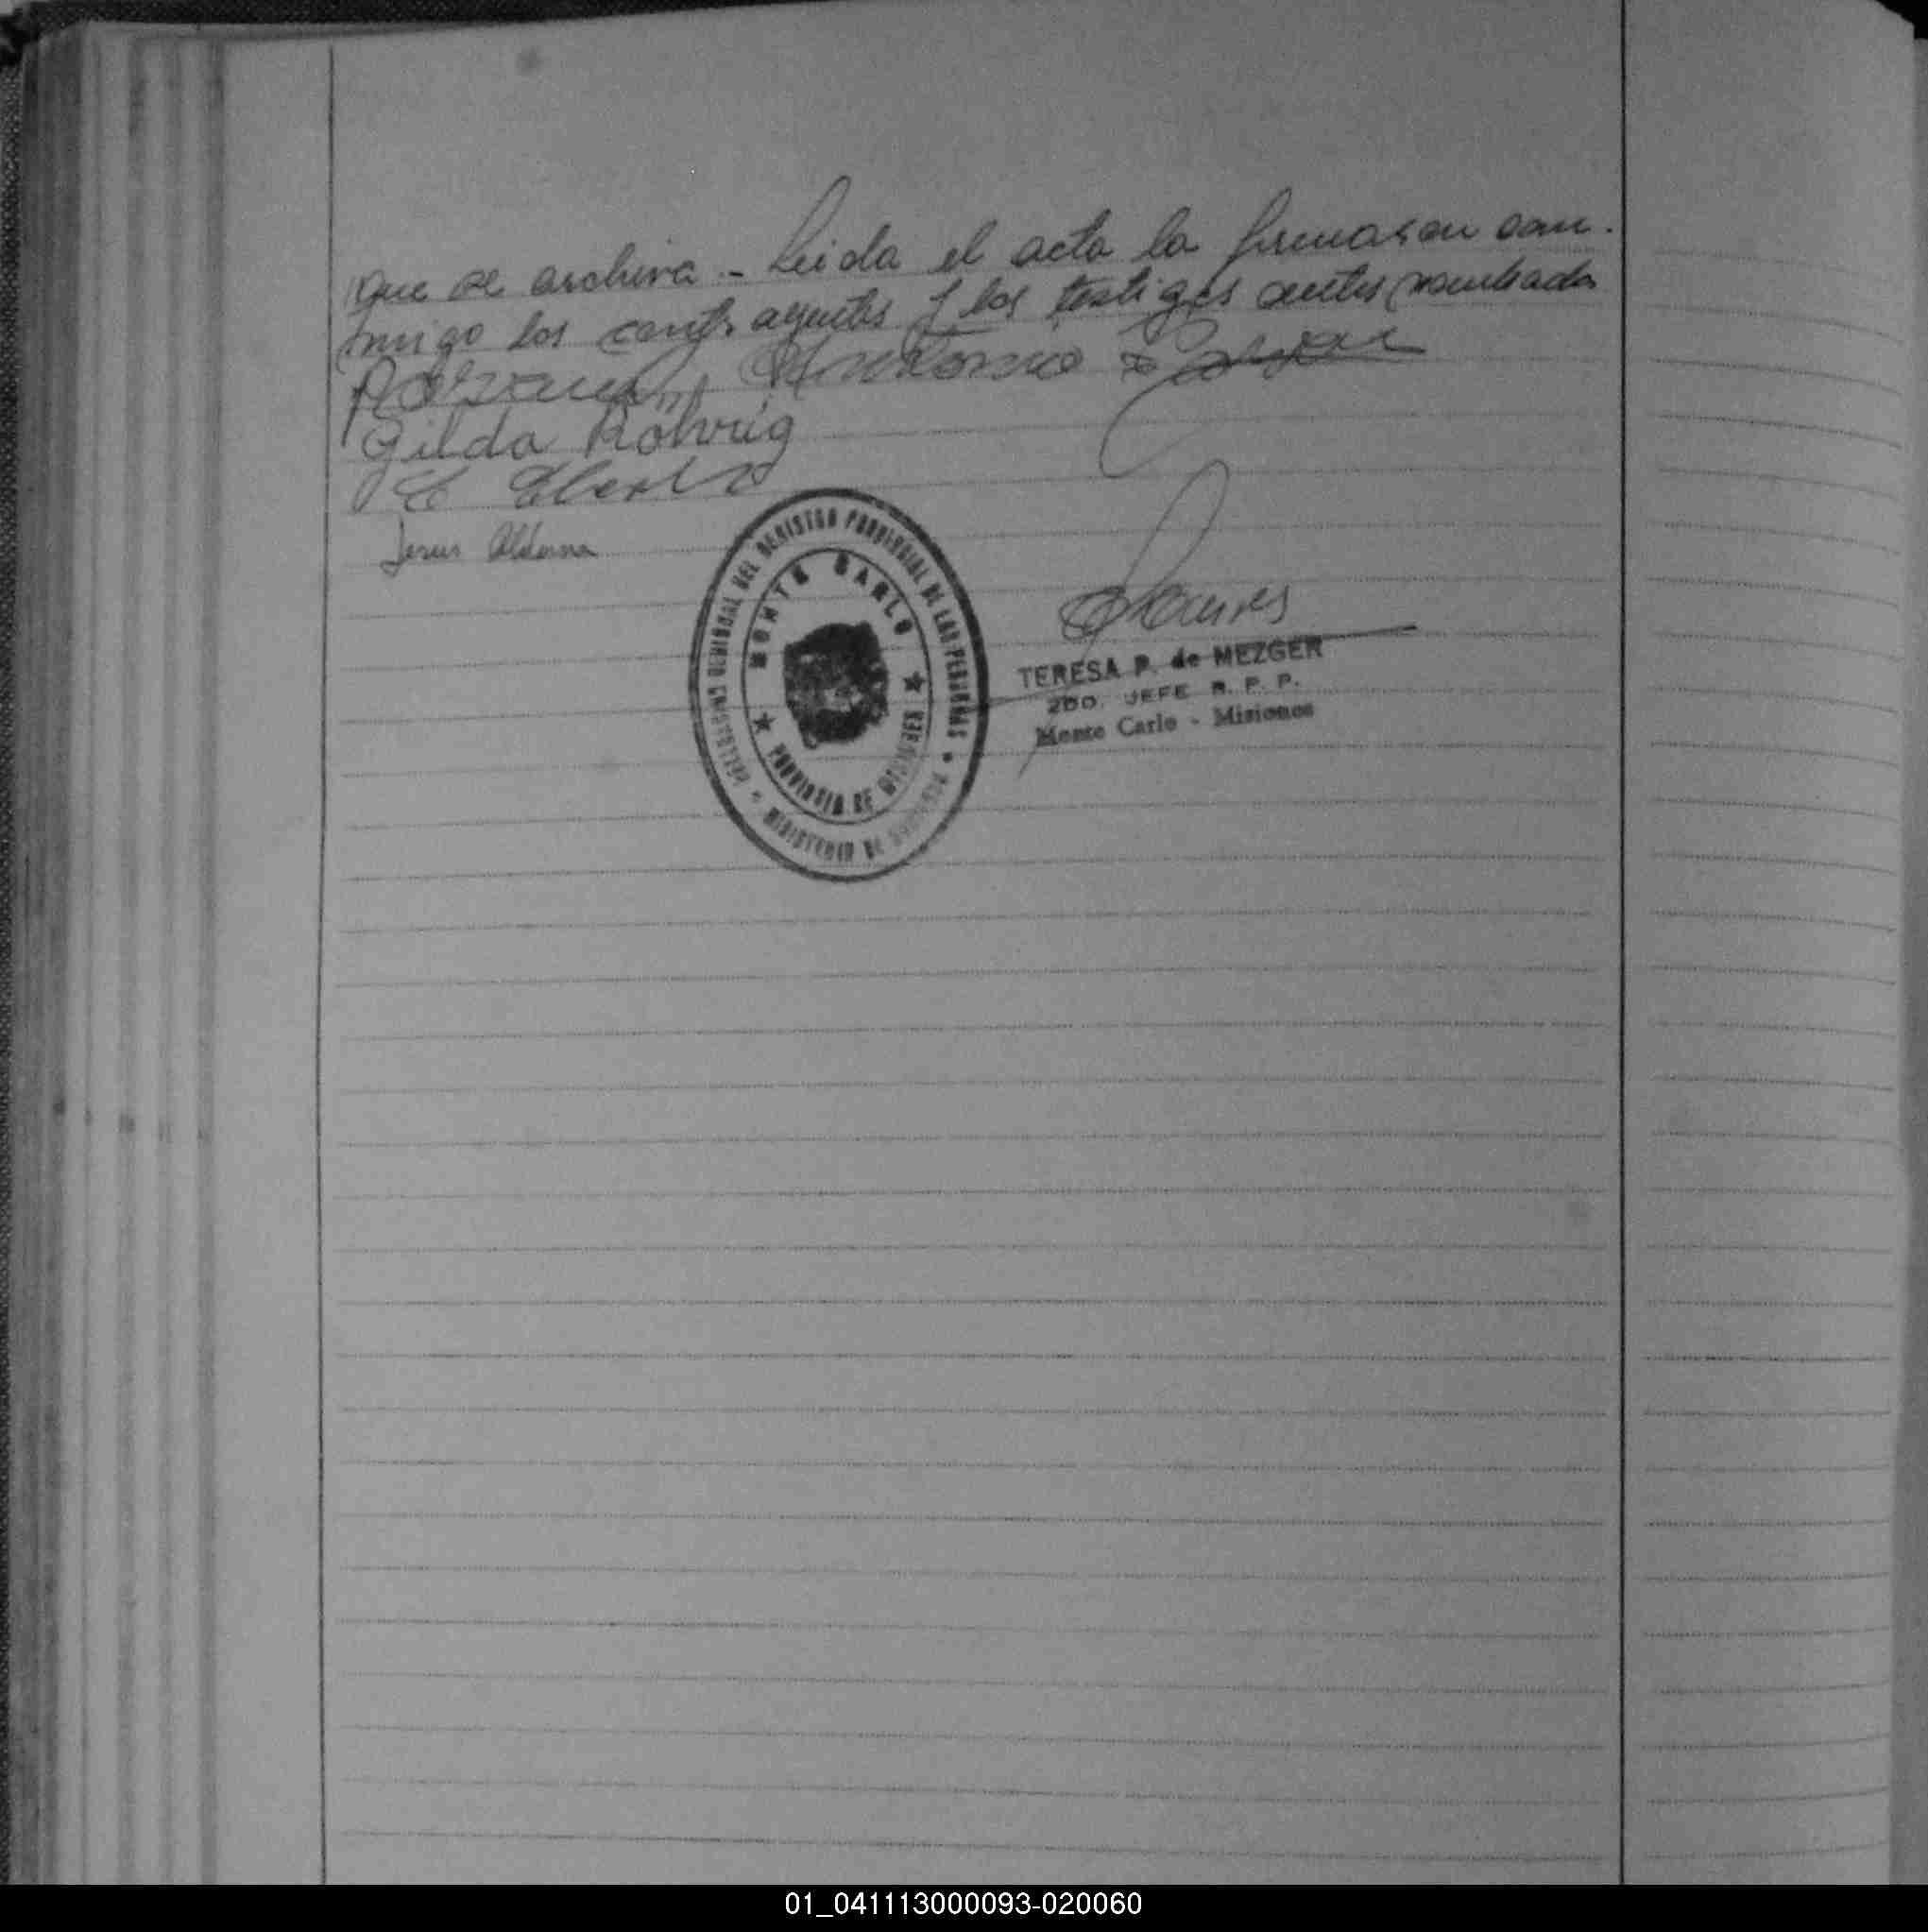 que se archiva.- Leida el acta la firmaron con-
migo los contrayentes y los testigos antes nombrados
Antonio
Gilda Rohrig
Jesus Aldana
DELEGACION SECCIONAL DEL REGISTRO PROVINCIAL DE LAS PERSONAS
MONTE CARLO
PROVINCIA DE MISIONES
MINISTERIO DE
TERESA P. de MEZGER
2DO. JEFE R. P. P.
Monte Carlo - Misiones
01_041113000093-020060